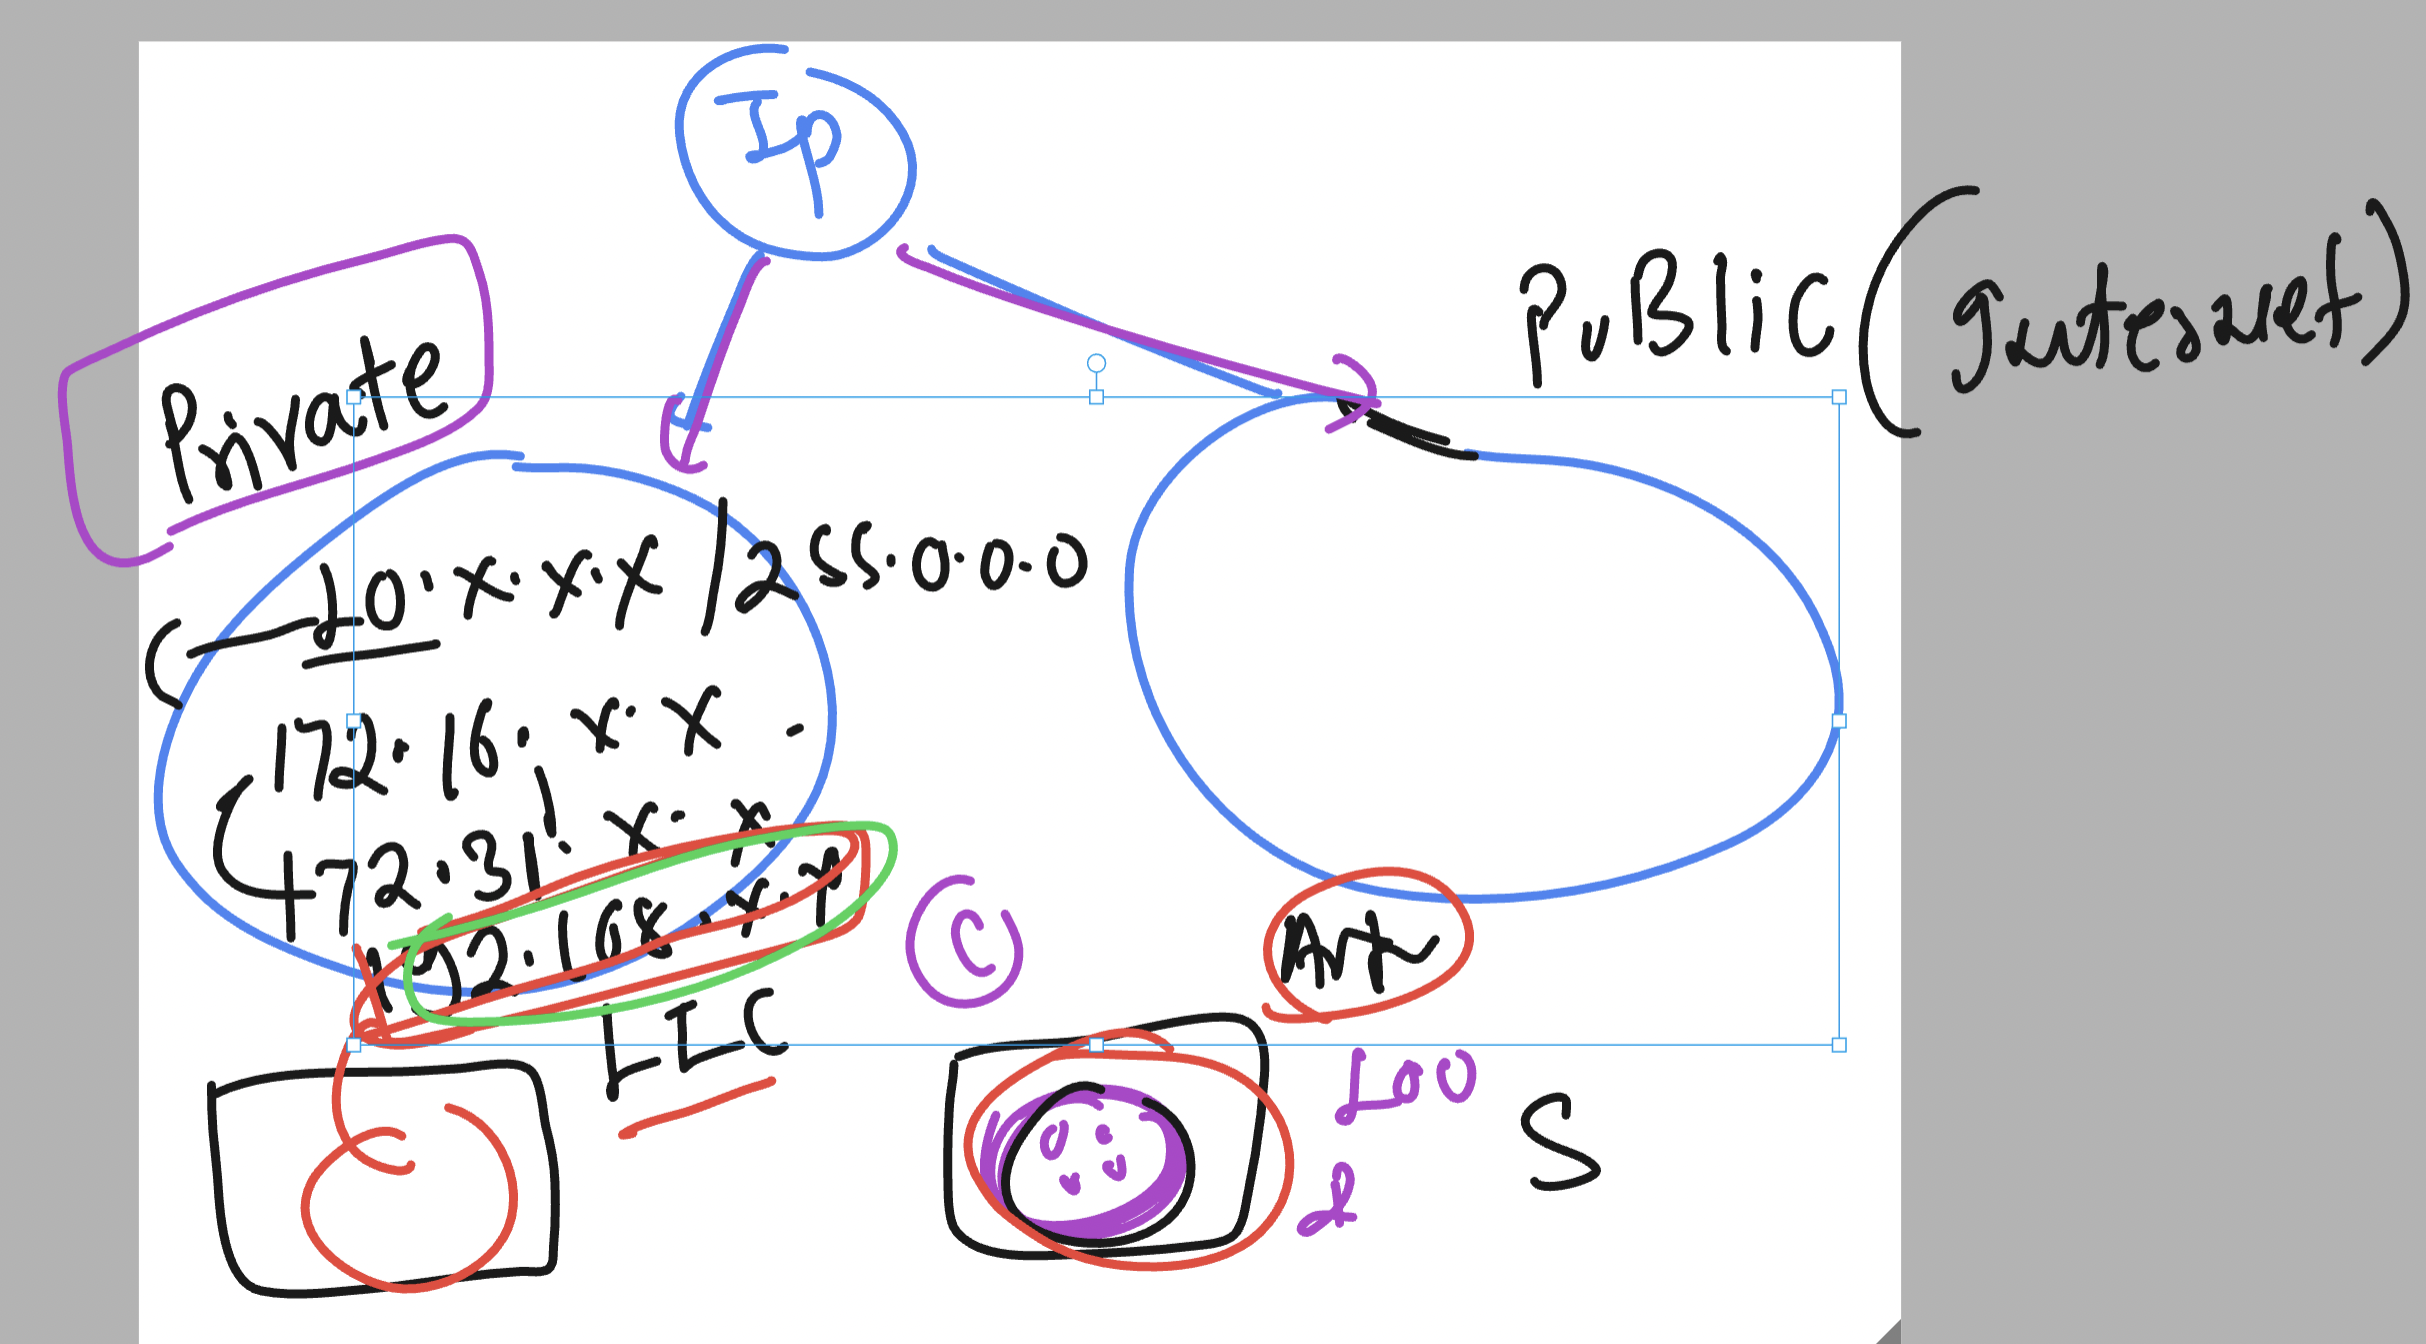 Ip
Private
PuBliC (Internet)
10.x.x.x / 255.0.0.0
172.16.x.x
172.31.x.x
192.168.x.x
C
LIC
100
S